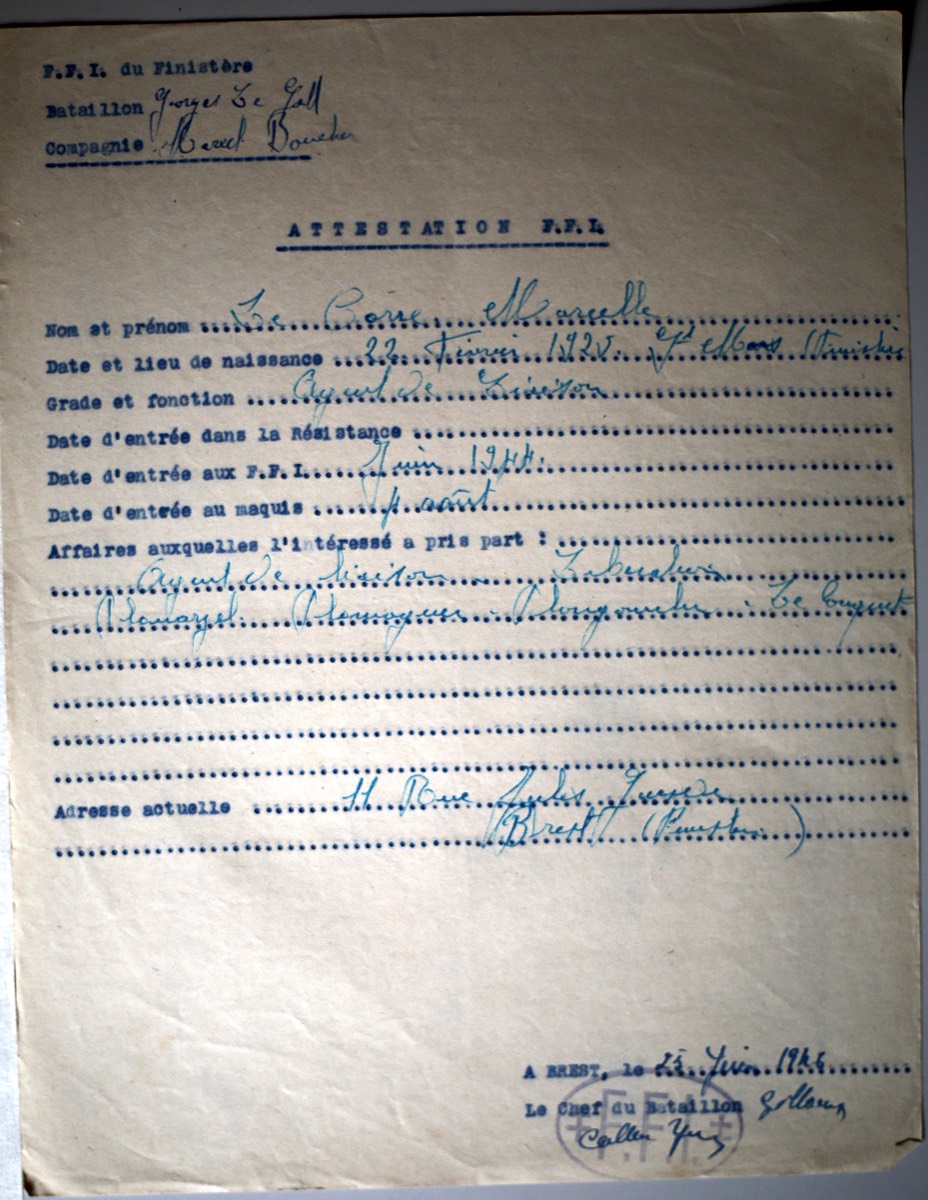 F.F.I. du Finistère
Bataillon Georges Le Gall
Compagnie Marcel Boucher
ATTESTATION F.F.I.
Nom et prénom Le Corre Marcelle
Date et lieu de naissance 22 Février St Mars (Finistère
Grade et fonction Agent de Liaison
Date d'entrée dans la Résistance
Date d'entrée aux F.F.I. Juin 1944.
Date d'entrée au maquis 4 août
Affaires auxquelles l'intéressé a pris part :
Agent de liaison
Ploumoguer Le Conquet
Adresse actuelle 11 Rue Jules
Brest (Finistère)
A BREST, le 25 Juin
Le Chef du Bataillon
F.F.I.